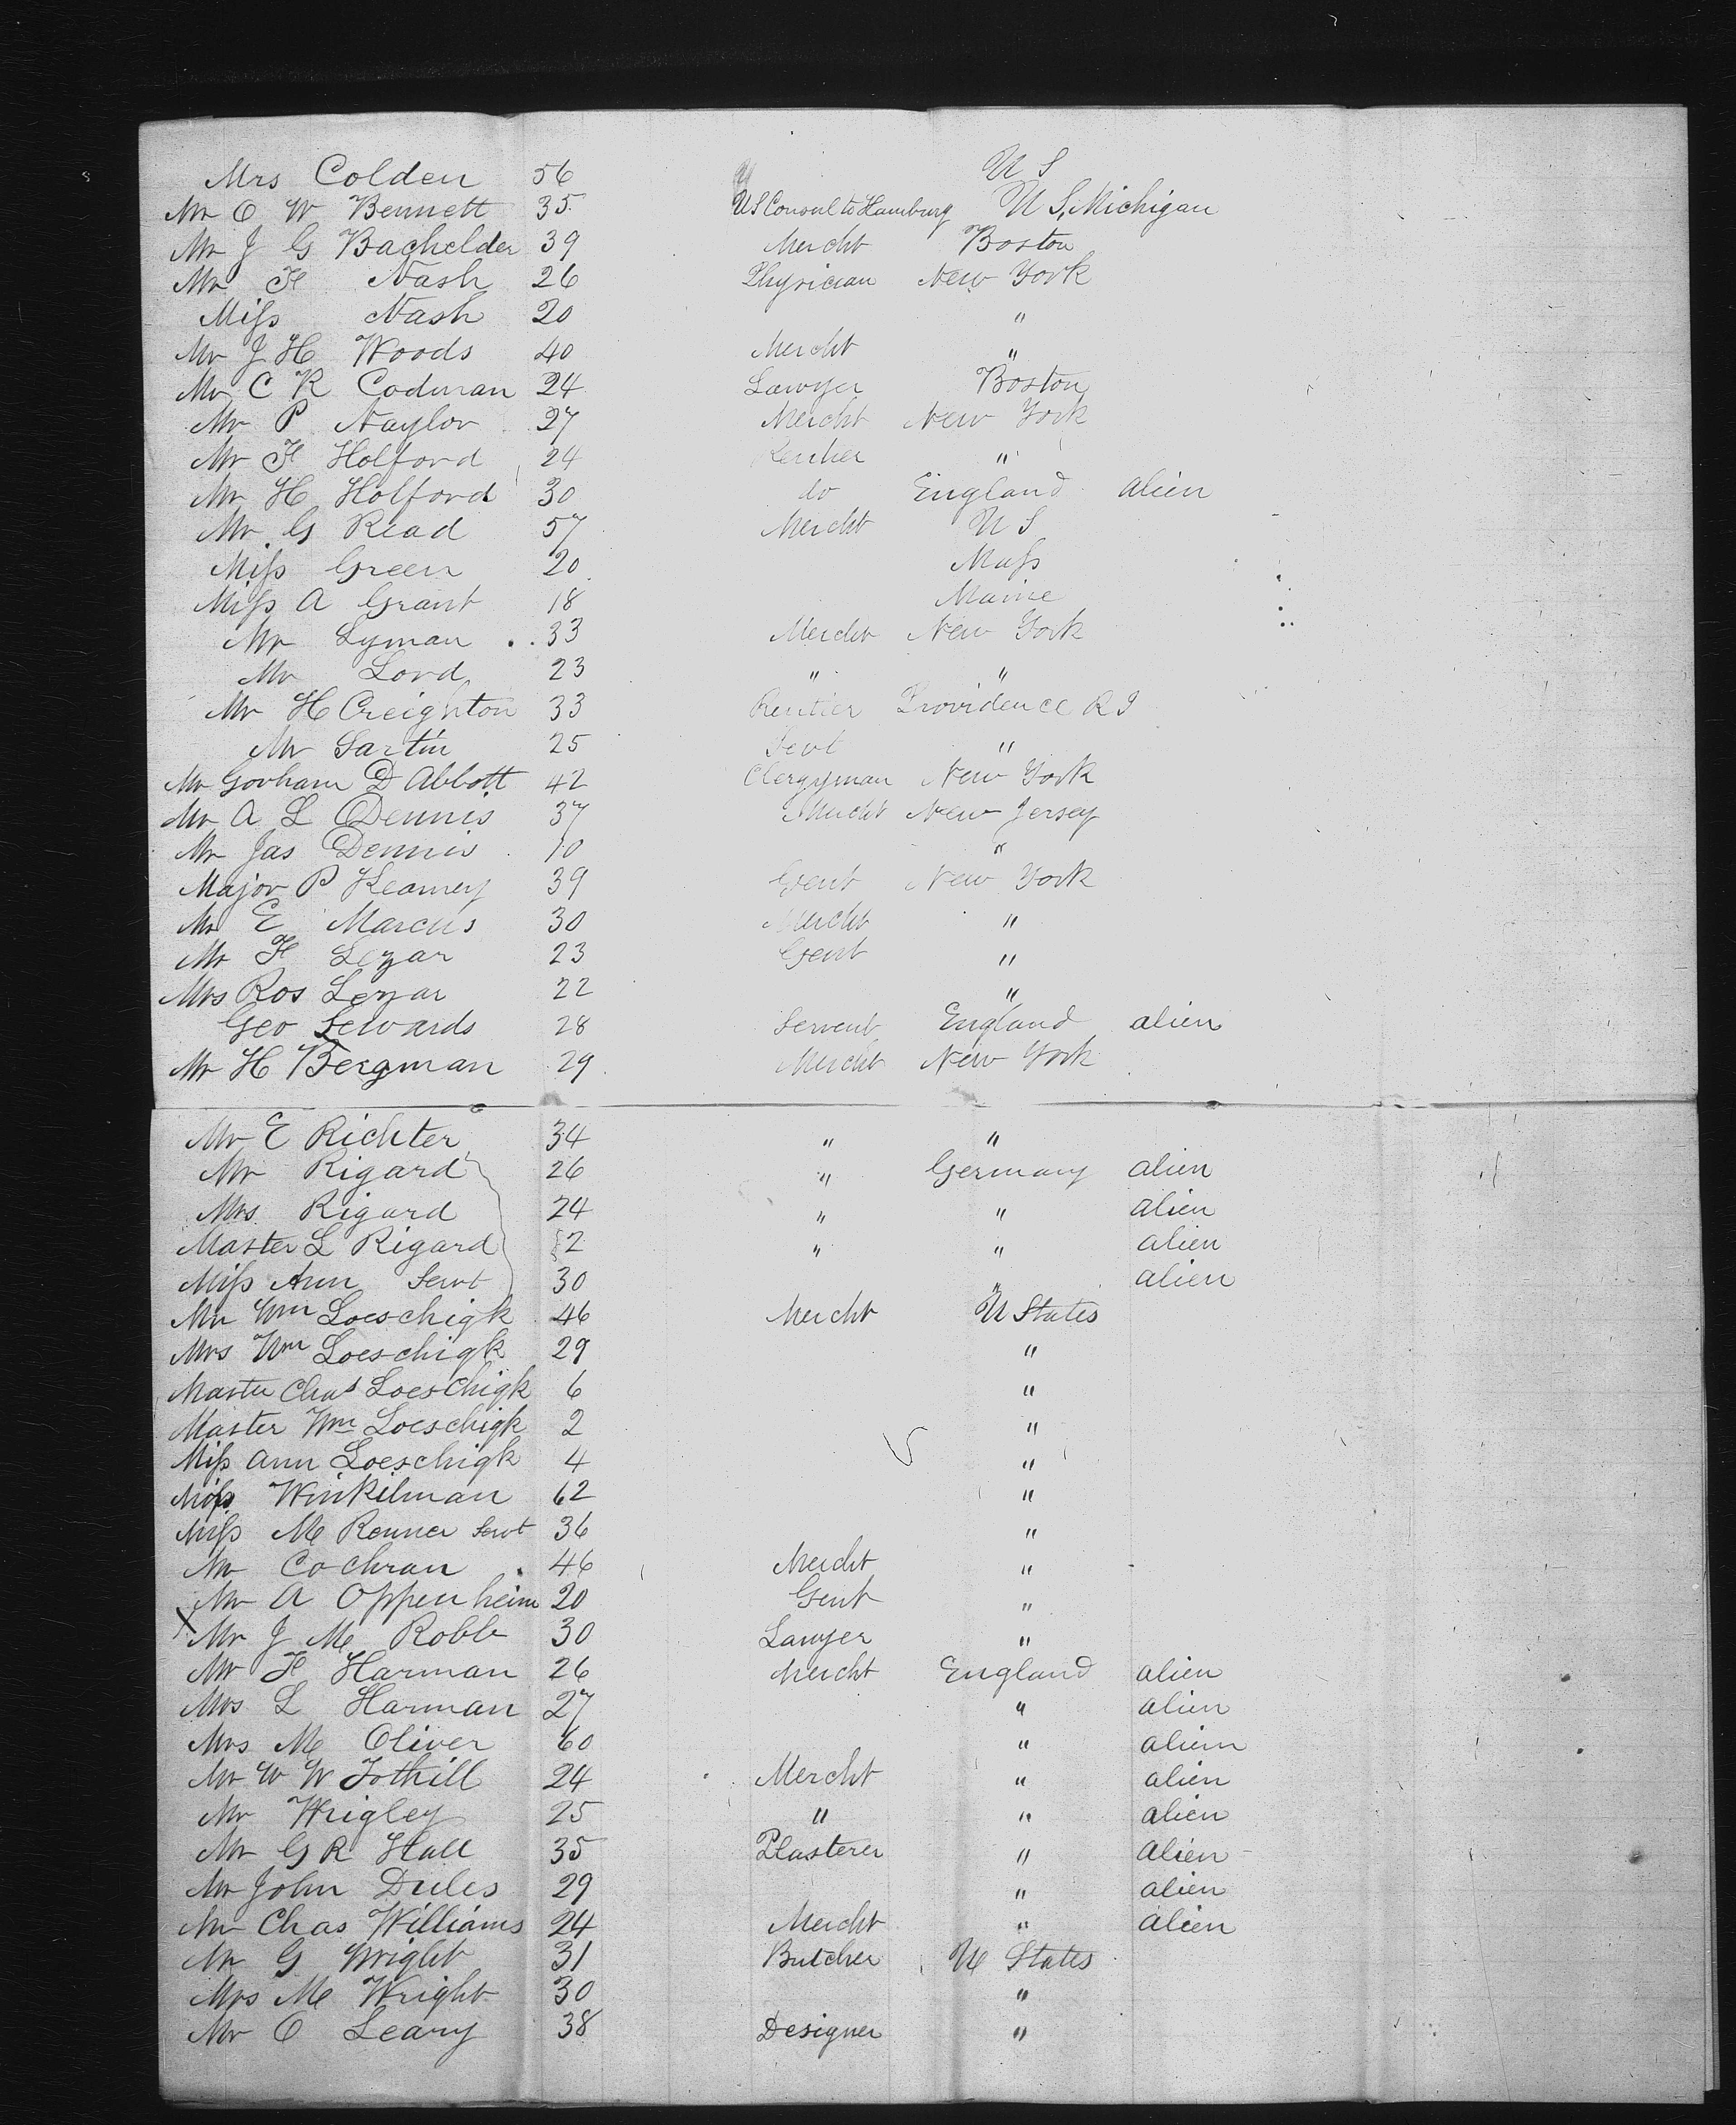 Mrs Colden 56 U S
Mr O W Bennett 35 US Consul to Hamburg U S, Michigan
Mr J G Bachelder 39 Mercht Boston
Mr F Nash 26 Physician New York
Miss Nash 20 "
Mr J H Woods 40 Mercht "
Mr C R Codman 24 Lawyer Boston
Mr P Naylor 27 Mercht New York
Mr F Holford 24 "
Mr H Holford 30 do England alien
Mr G Read 57 Mercht U S
Miss Green 20 Mass
Miss A Grant 18 Maine
Mr Lyman 33 Mercht New York
Mr Lord 23 " "
Mr H Creighton 33 Rentier Providence R I
Mr Sartin 25 Servt "
Mr Gorham D Abbott 42 Clergyman New York
Mr A L Dennis 37 Mercht New Jersey
Mr Jas Dennis 10 "
Major P Kearney 39 Gent New York
Mr E Marcus 30 Mercht "
Mr F Lezar 23 Gent "
Mrs Ros Lezar 22 "
Geo Sewards 28 Servent England alien
Mr H Bergman 29 Mercht New York
Mr E Richter 34 " "
Mr Rigard 26 " Germany alien
Mrs Rigard 24 " " alien
Master L Rigard 2 " " alien
Miss Ann Servt 30 " alien
Mr Wm Loeschigk 46 Mercht U States
Mrs Wm Loeschigk 29 "
Master Chas Loeschigk 6 "
Master Wm Loeschigk 2 "
Miss Ann Loeschigk 4 "
Miss Winkilman 62 "
Miss M Renner Servt 36 "
Mr Cochran 46 Mercht "
Mr A Oppenheim 20 Gent "
X Mr J M Robb 30 Lawyer "
Mr F Harman 26 Mercht England alien
Mrs L Harman 27 " alien
Mrs M Oliver 60 " alien
Mr W W Tothill 24 Mercht " alien
Mr Wrigley 25 " " alien
Mr G R Hall 35 Plasterer " alien
Mr John Dules 29 " alien
Mr Chas Williams 24 Mercht " alien
Mr G Wright 31 Butcher U States
Mrs M Wright 30 "
Mr O Leary 38 Designer "